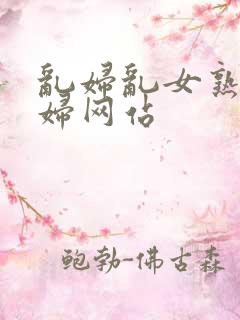 乱婦乱女熟
婦网站
鲍勃-佛古森